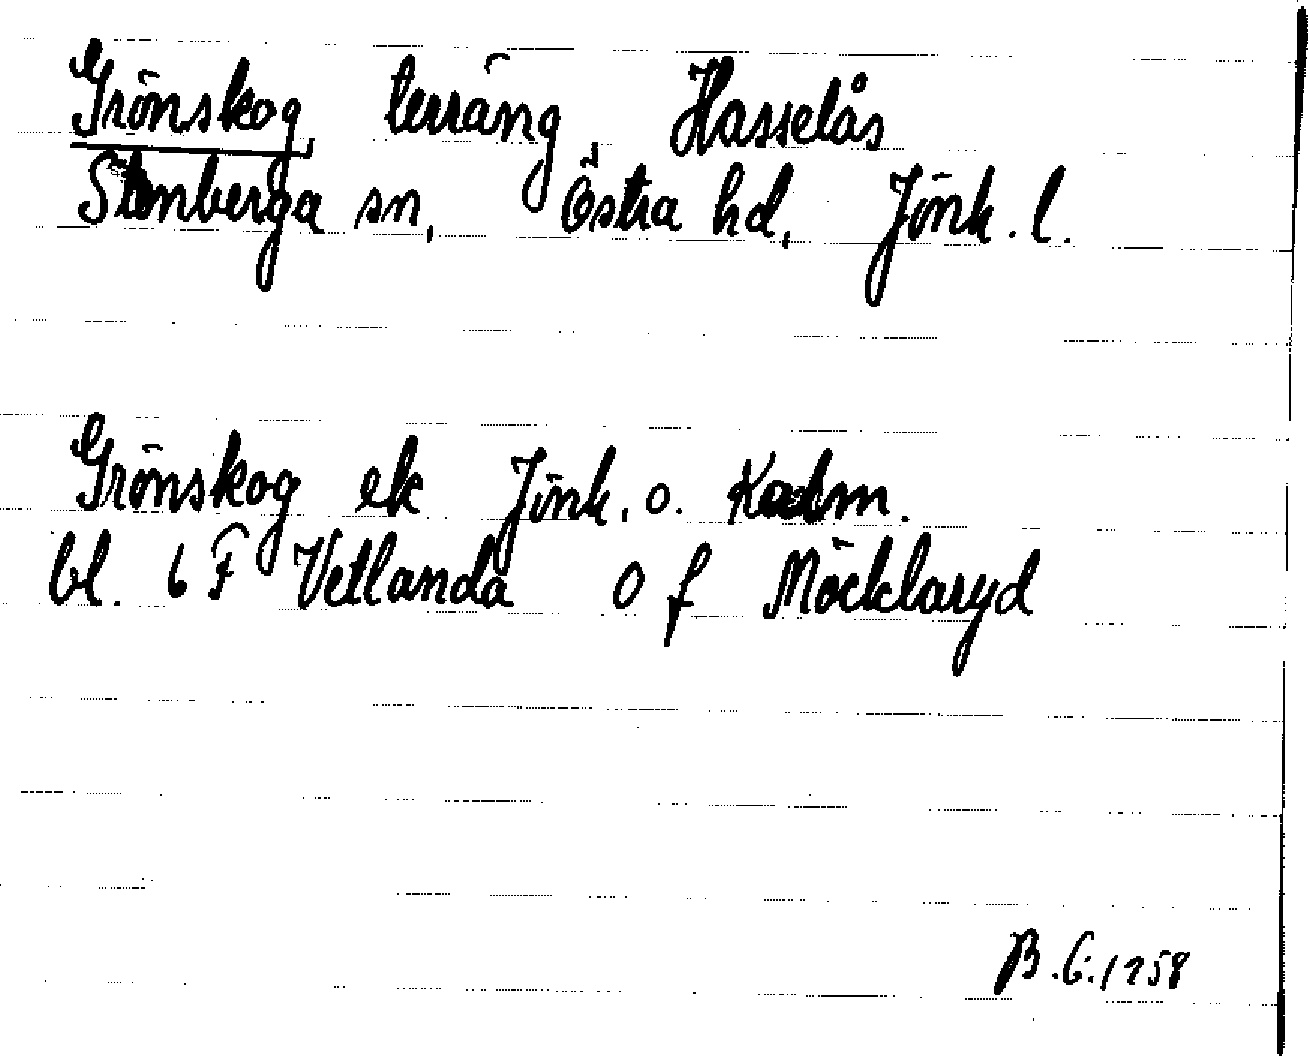 Grönskog, terräng, Hasselås
Stenberga sn, Östra hd, Jönk. l.
Grönskog ek Jönk. o. Kalm.
bl. 6 F Vetlanda O f Möcklaryd
B.G. 1258